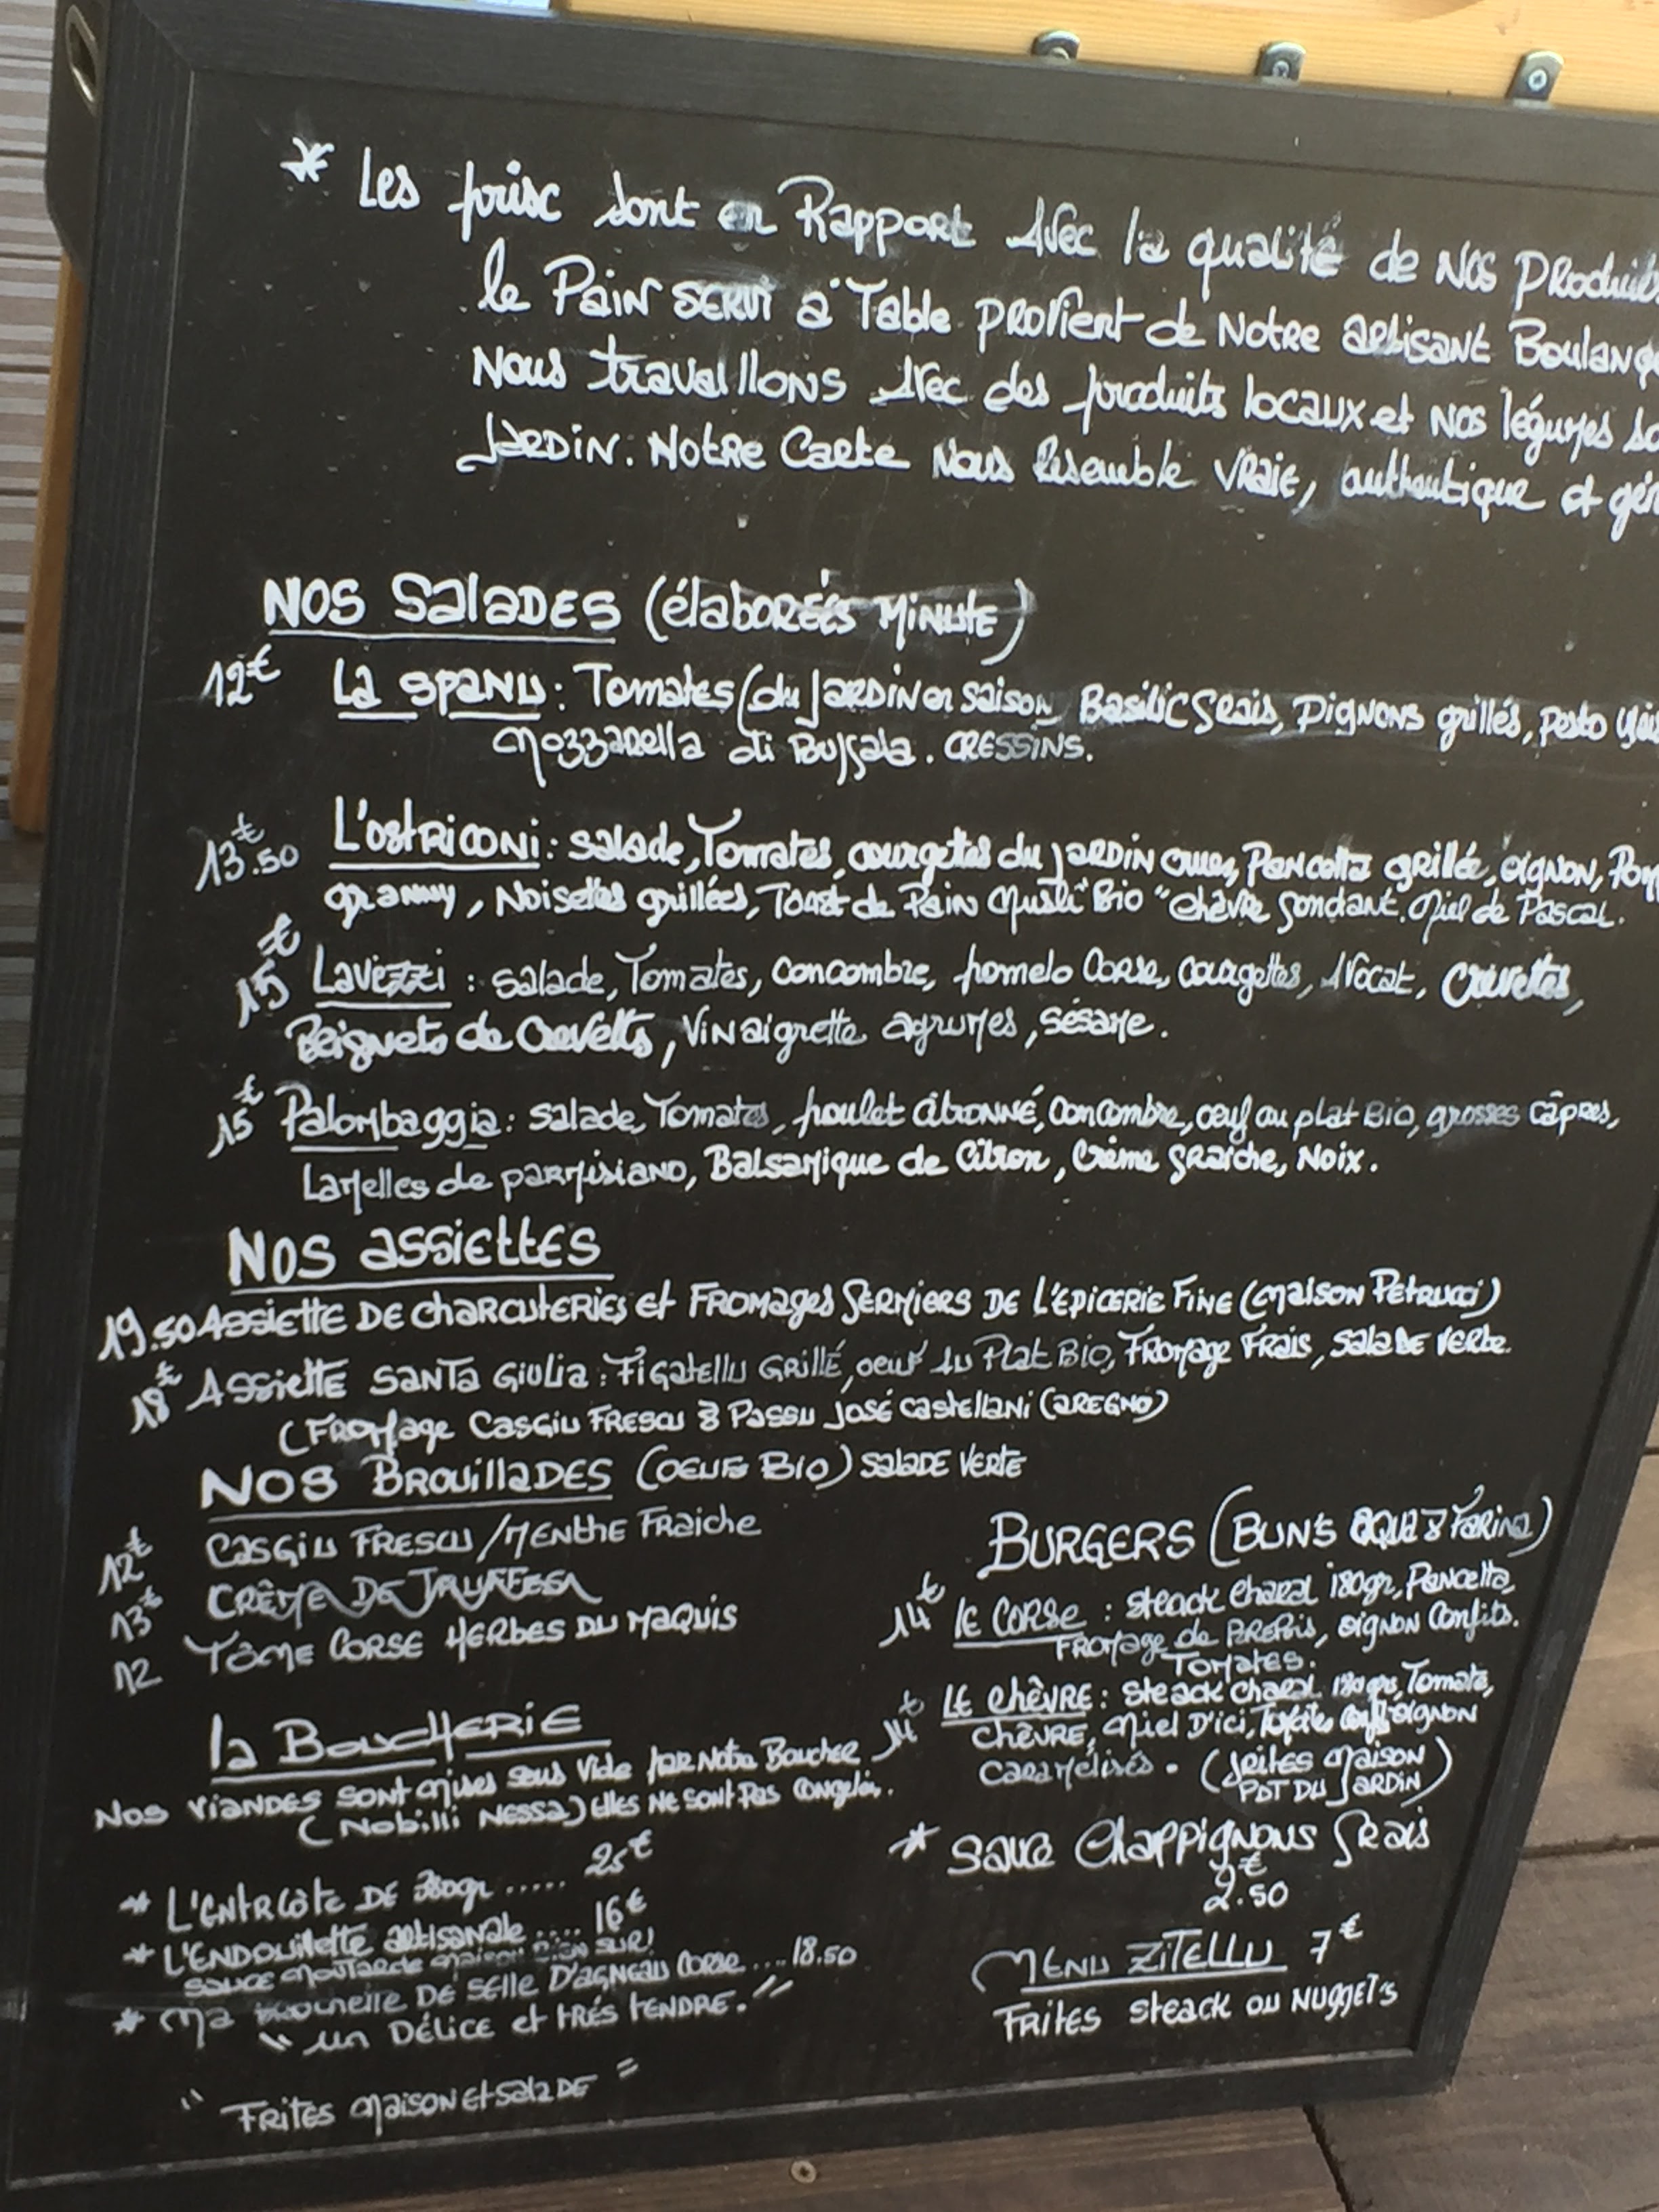 * Les prisc sont en Rapport Avec la qualité de Nos Produits
le Pain servi à Table provient de Notre artisant Boulang
Nous travaillons Avec des produits locaux et Nos légumes so
Jardin. Notre Carte Nous ressemble vraie, authentique et gén
Nos Salades (élaborées Minute)
12€ La Spanu : Tomates (du Jardin en saison Basilic frais, pignons grillés, pesto
Mozzarella di Buffala. Cressins.
13€.50 L'Ostriconi : salade, Tomates, courgettes du jardin crues, Pancetta grillée, oignon, Pom
granny, Noisettes grillées, Toast de Pain Musli "Bio" chèvre fondant. Miel de Pascal.
15€ Lavezzi : salade, Tomates, concombre, pomelo Corse, courgettes, Avocat, Crevettes,
Beignets de Crevetts, Vinaigrette agrumes, sésame.
15€ Palombaggia : salade, Tomates, poulet citronné, concombre, oeuf au plat Bio, grosses câpres,
Lamelles de parmisiano, Balsamique de Citron, Crème fraiche, Noix.
Nos assiettes
19.50 Assiette de charcuteries et Fromages fermiers de l'épicerie fine (Maison Petrucci)
18€ Assiette Santa Giulia : Figatellu Grillé, oeuf au Plat Bio, Fromage Frais, salade verte.
(Fromage Casgiu Frescu & Passu José Castellani (Aregno)
Nos Brouillades (oeufs Bio) salade verte
12€ Casgiu Frescu / Menthe Fraiche
13€ Crême de
12 Tôme Corse Herbes du Maquis
la Boucherie
Nos viandes sont mises sous Vide par Notre Boucher
(Nobilli Nessa) elles ne sont Pas congelés.
* L'Entrcôte de 380gr ..... 25€
* L'Endouillette artisanale .... 16€
sauce moutarde maison bien sur!
* Ma de selle d'agneau Corse .... 18.50
"un délice et trés tendre."
"Frites maison et salade"
Burgers (Bun's aqua & Farina)
14€ le Corse : steack charal 180gr, Pancetta,
Fromage de Brebis, oignon Confits.
Tomates.
14€ le chèvre : steack charal 180grs, Tomate,
chèvre, Miel d'ici, oignon
caramelisés. (frites maison
PDT du Jardin)
* sauce Chappignons frais
2€.50
Menu Zitellu 7€
Frites steack ou nugget's